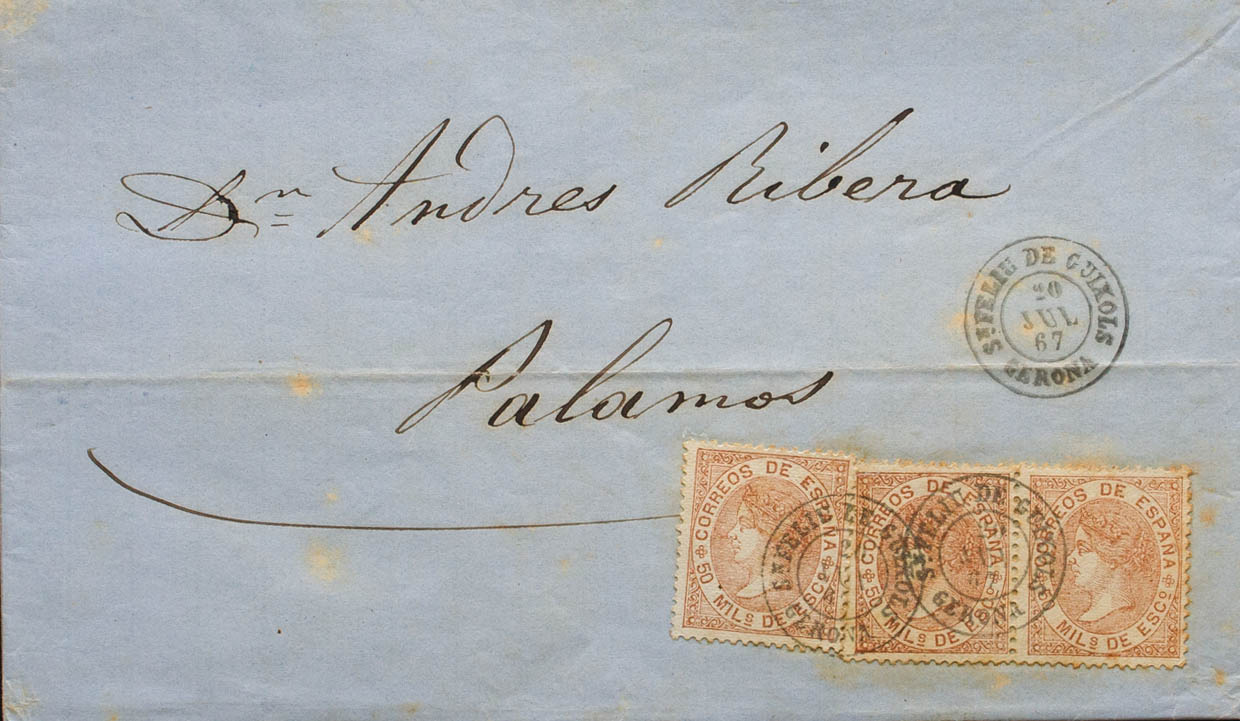 Dn Andres Ribera
Palamos
Sn FELIU DE GUIXOLS
20
JUL
67
GERONA
CORREOS DE ESPAÑA
50 MILS DE ESCO
CORREOS DE ESPAÑA
50 MILS DE ESCO
CORREOS DE ESPAÑA
MILS DE ESCO